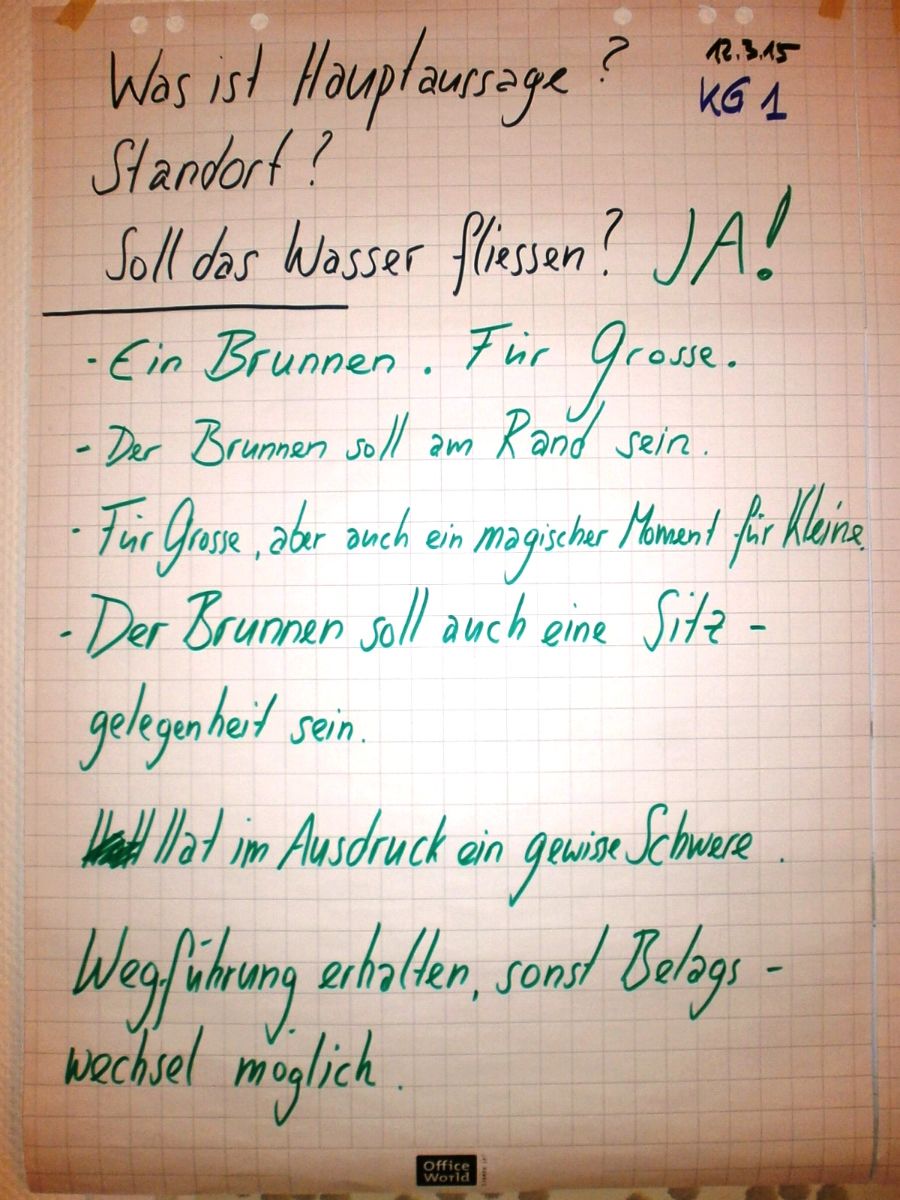 Was ist Hauptaussage?
12.3.15
KG 1
Standort?
Soll das Wasser fliessen? JA!
- Ein Brunnen. Für Grosse.
- Der Brunnen soll am Rand sein.
- Für Grosse, aber auch ein magischer Moment für Kleine.
- Der Brunnen soll auch eine Sitz-
gelegenheit sein.
Hat im Ausdruck ein gewisse Schwere.
Wegführung erhalten, sonst Belags-
wechsel möglich.
Office
World